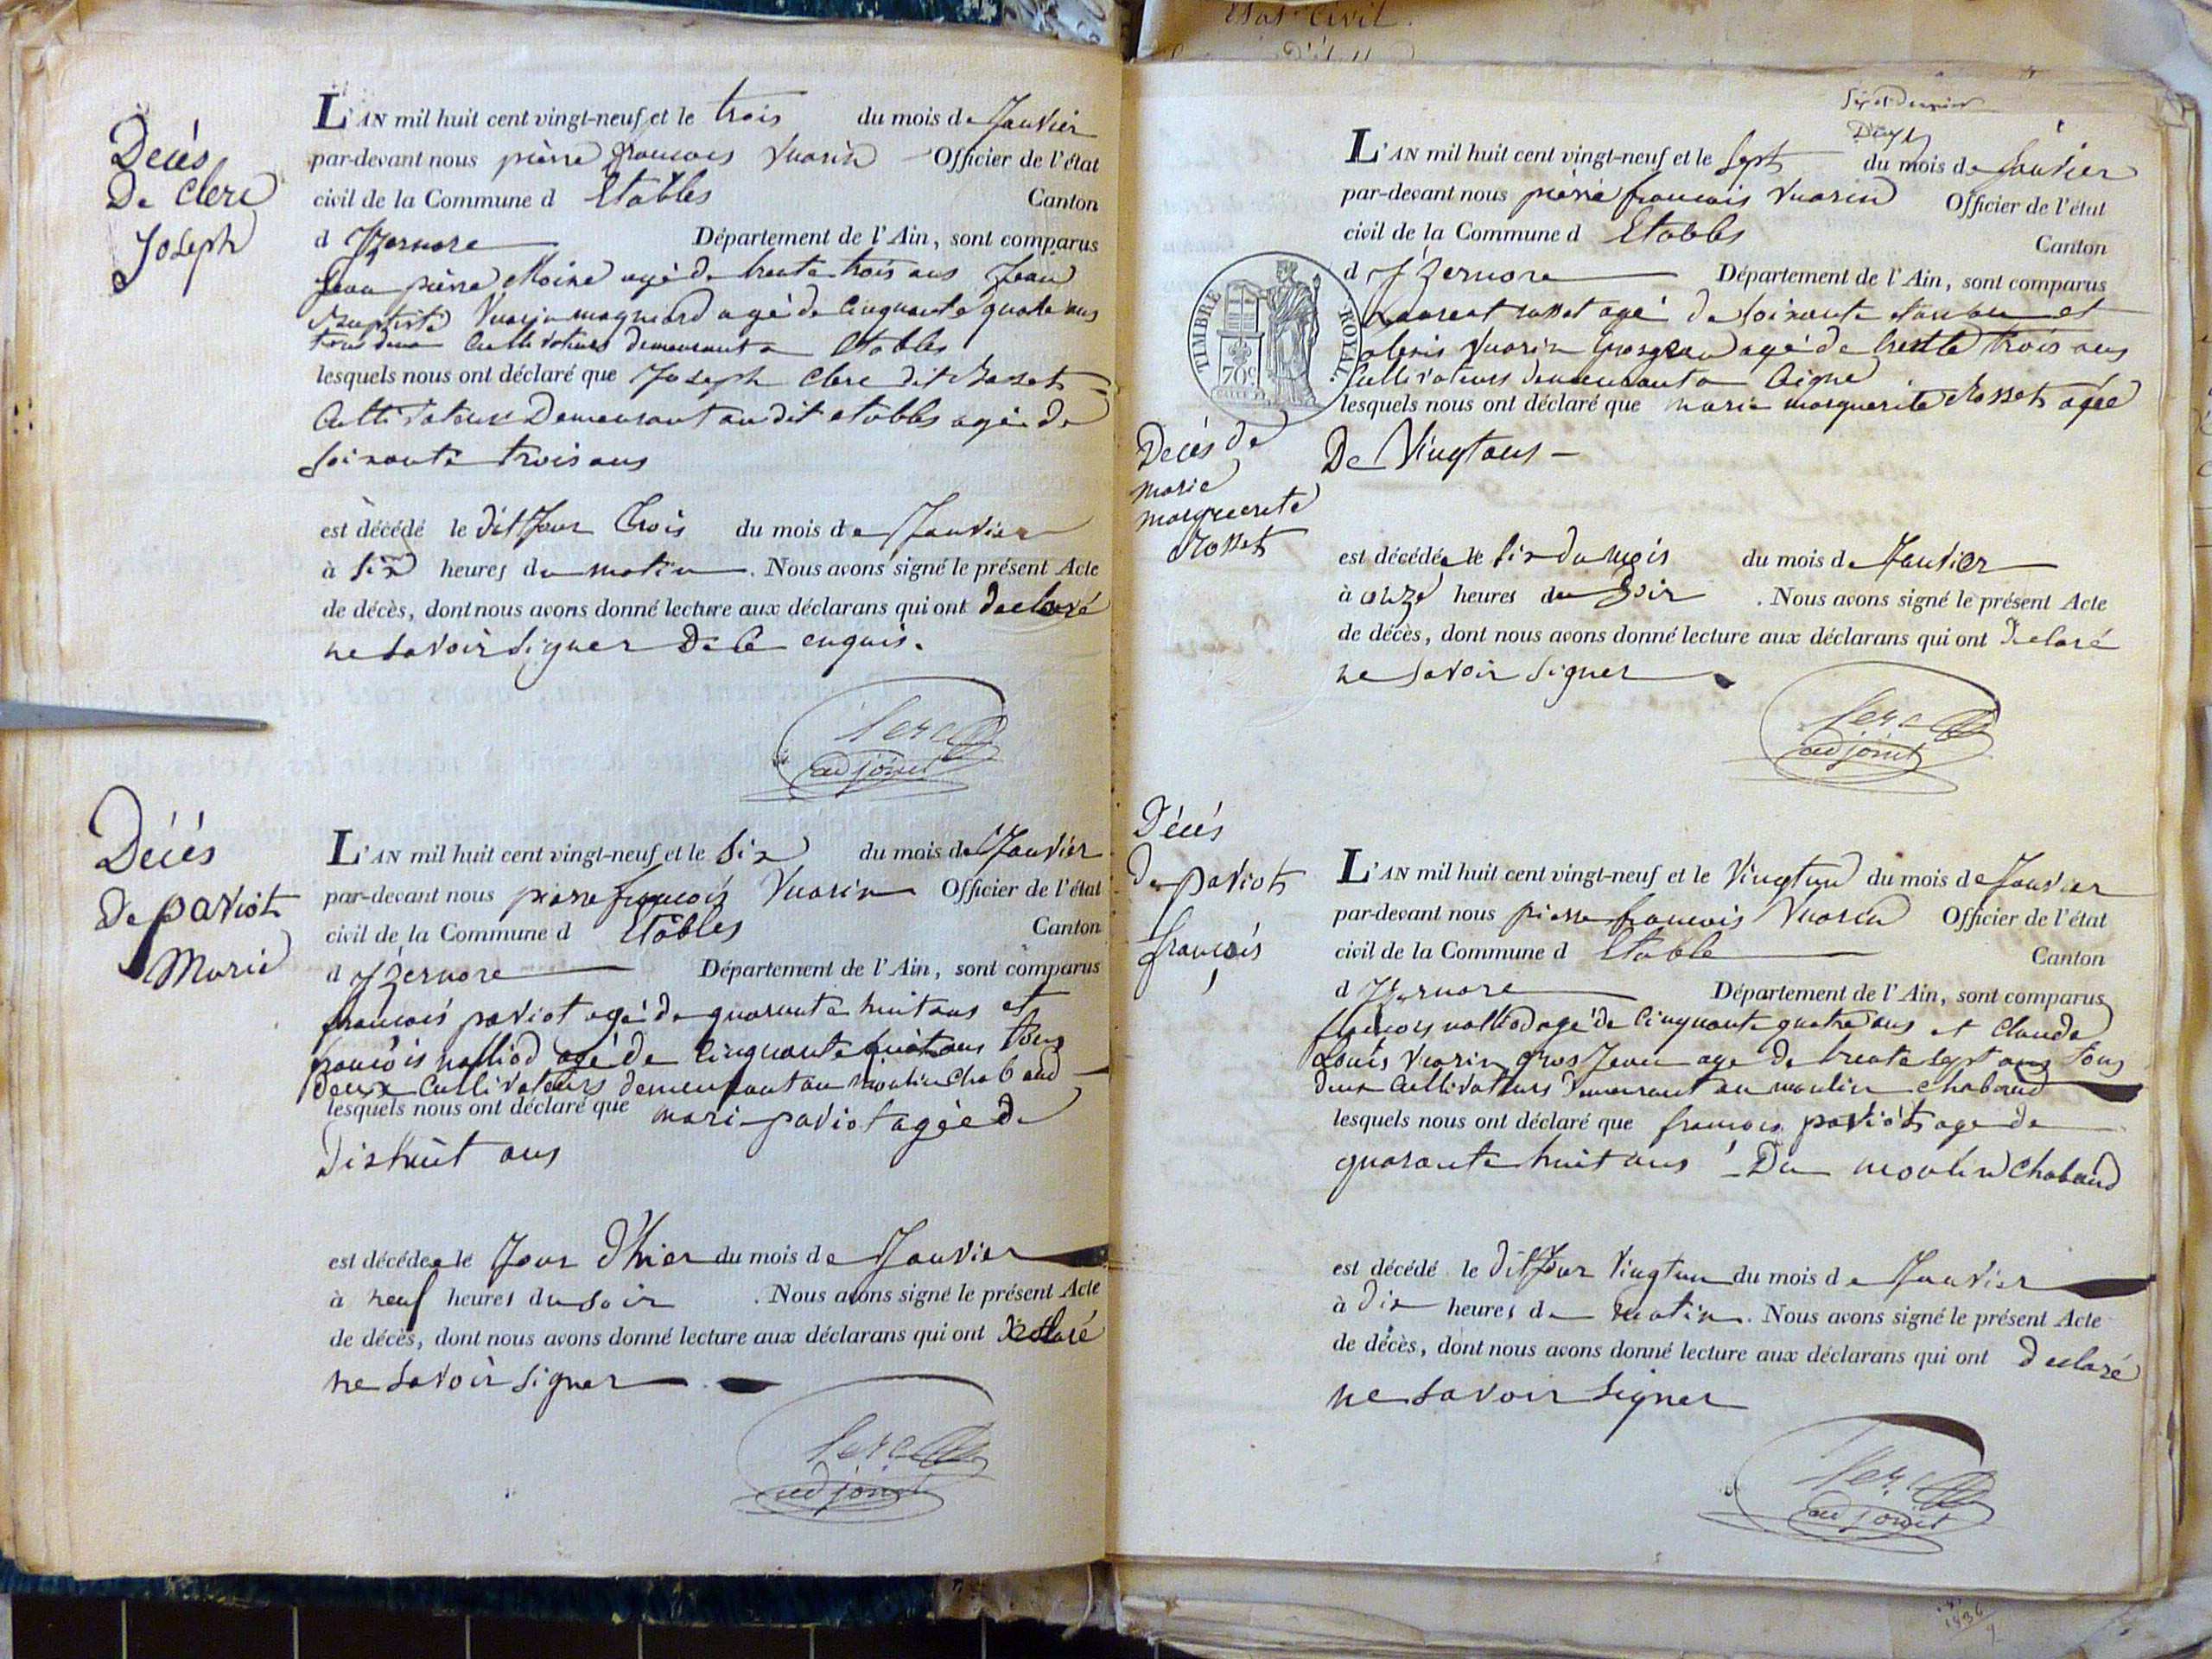 Decés
De Clerc
Joseph
L'AN mil huit cent vingt-neuf et le trois du mois de Janvier
par-devant nous pièrre francois Vuarin Officier de l'état
civil de la Commune d Etables Canton
d Izernore Département de l'Ain, sont comparus
Jean pièrre Moine agé de trente trois ans Jean
Baptiste Vuarin magniard agé de Cinquante quatre ans
tous deux Cultivateurs demeurant a Etables
lesquels nous ont déclaré que Joseph Clerc dit
Cultivateur Demeurant au dit etables agé de
soixante trois ans
est décédé le dit Jour trois du mois de Janvier
à six heures du matin. Nous avons signé le présent Acte
de décès, dont nous avons donné lecture aux déclarans qui ont declaré
ne savoir signer De ce enquis.
Clerc
adjoint
Décés
De paviot
Marie
L'AN mil huit cent vingt-neuf et le Six du mois de Janvier
par-devant nous pierre françois Vuarin Officier de l'état
civil de la Commune d Etables Canton
d Izernore Département de l'Ain, sont comparus
francois paviot agé de quarante huit ans et
francois nalliod agé de Cinquante ans tous
deux Cultivateurs demeurant au moulin Chabaud
lesquels nous ont déclaré que mari paviot agée de
dishuit ans
est décédee le Jour d'hier du mois de Janvier
à neuf heures du soir. Nous avons signé le présent Acte
de décès, dont nous avons donné lecture aux déclarans qui ont declaré
ne savoir signer
Clerc
adjoint
Etat Civil
L'AN mil huit cent vingt-neuf et le Sept du mois de Janvier
par-devant nous pièrre francois Vuarin Officier de l'état
civil de la Commune d Etables Canton
d Izernore Département de l'Ain, sont comparus
Laurent rosset agé de soixante et
alexis Vuarin agé de trente trois ans
Cultivateurs demeurant a Ceigne
lesquels nous ont déclaré que marie marguerite Rosset agée
De Vingt ans
TIMBRE ROYAL
70c
Decés de
marie
marguerite
Rosset
est décédée le six du mois du mois de Janvier
à onze heures du Soir. Nous avons signé le présent Acte
de décès, dont nous avons donné lecture aux déclarans qui ont declaré
ne savoir signer
Clerc
adjoint
Décés
De paviot
francois
L'AN mil huit cent vingt-neuf et le Vingtun du mois de Janvier
par-devant nous pierre francois Vuarin Officier de l'état
civil de la Commune d Etable Canton
d Izernore Département de l'Ain, sont comparus
francois nalliod agé de Cinquante quatre ans et Claude
Louis Vuarin gros Jean age de trente sept ans tous
deux Cultivateurs demeurant au moulin Chabaud
lesquels nous ont déclaré que francois paviot age de
quarante huit ans Du moulin Chabaud
est décédé le dit Jour Vingtun du mois de Janvier
à dix heures du matin. Nous avons signé le présent Acte
de décès, dont nous avons donné lecture aux déclarans qui ont declaré
ne savoir signer
Clerc
adjoint